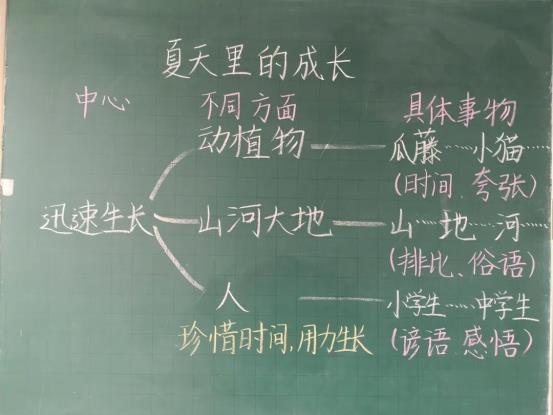 夏天里的成长
中心 不同方面 具体事物
动植物 瓜藤……小猫……
(时间、夸张)
迅速生长 山河大地 山……地……河……
(排比、俗语)
人 小学生……中学生
珍惜时间,用力生长 (谚语 感悟)